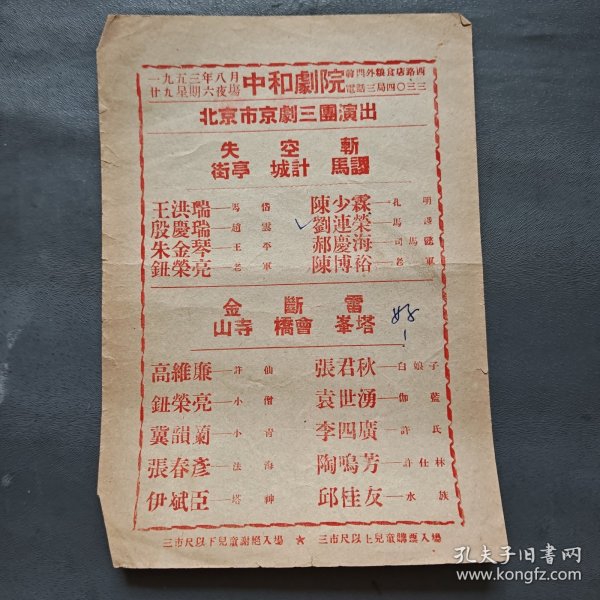 一九五三年八月
廿九星期六夜場
中和劇院
前門外糧食店路西
電話三局四〇三三
北京市京劇三團演出
失 空 斬
街亭 城計 馬謖
王洪瑞—馬岱
殷慶瑞—趙雲
朱金琴—王平
鈕榮亮—老軍
陳少霖—孔明
劉連榮—馬謖
郝慶海—司馬懿
陳博裕—老軍
金 斷 雷
山寺 橋會 峯塔
好!
高維廉—許仙
鈕榮亮—小僧
冀韻蘭—小青
張春彥—法海
伊斌臣—塔神
張君秋—白娘子
袁世湧—伽藍
李四廣—許氏
陶鳴芳—許仕林
邱桂友—水族
三市尺以下兒童謝絕入場 ★ 三市尺以上兒童購票入場
孔夫子旧书网
www.kongfz.com